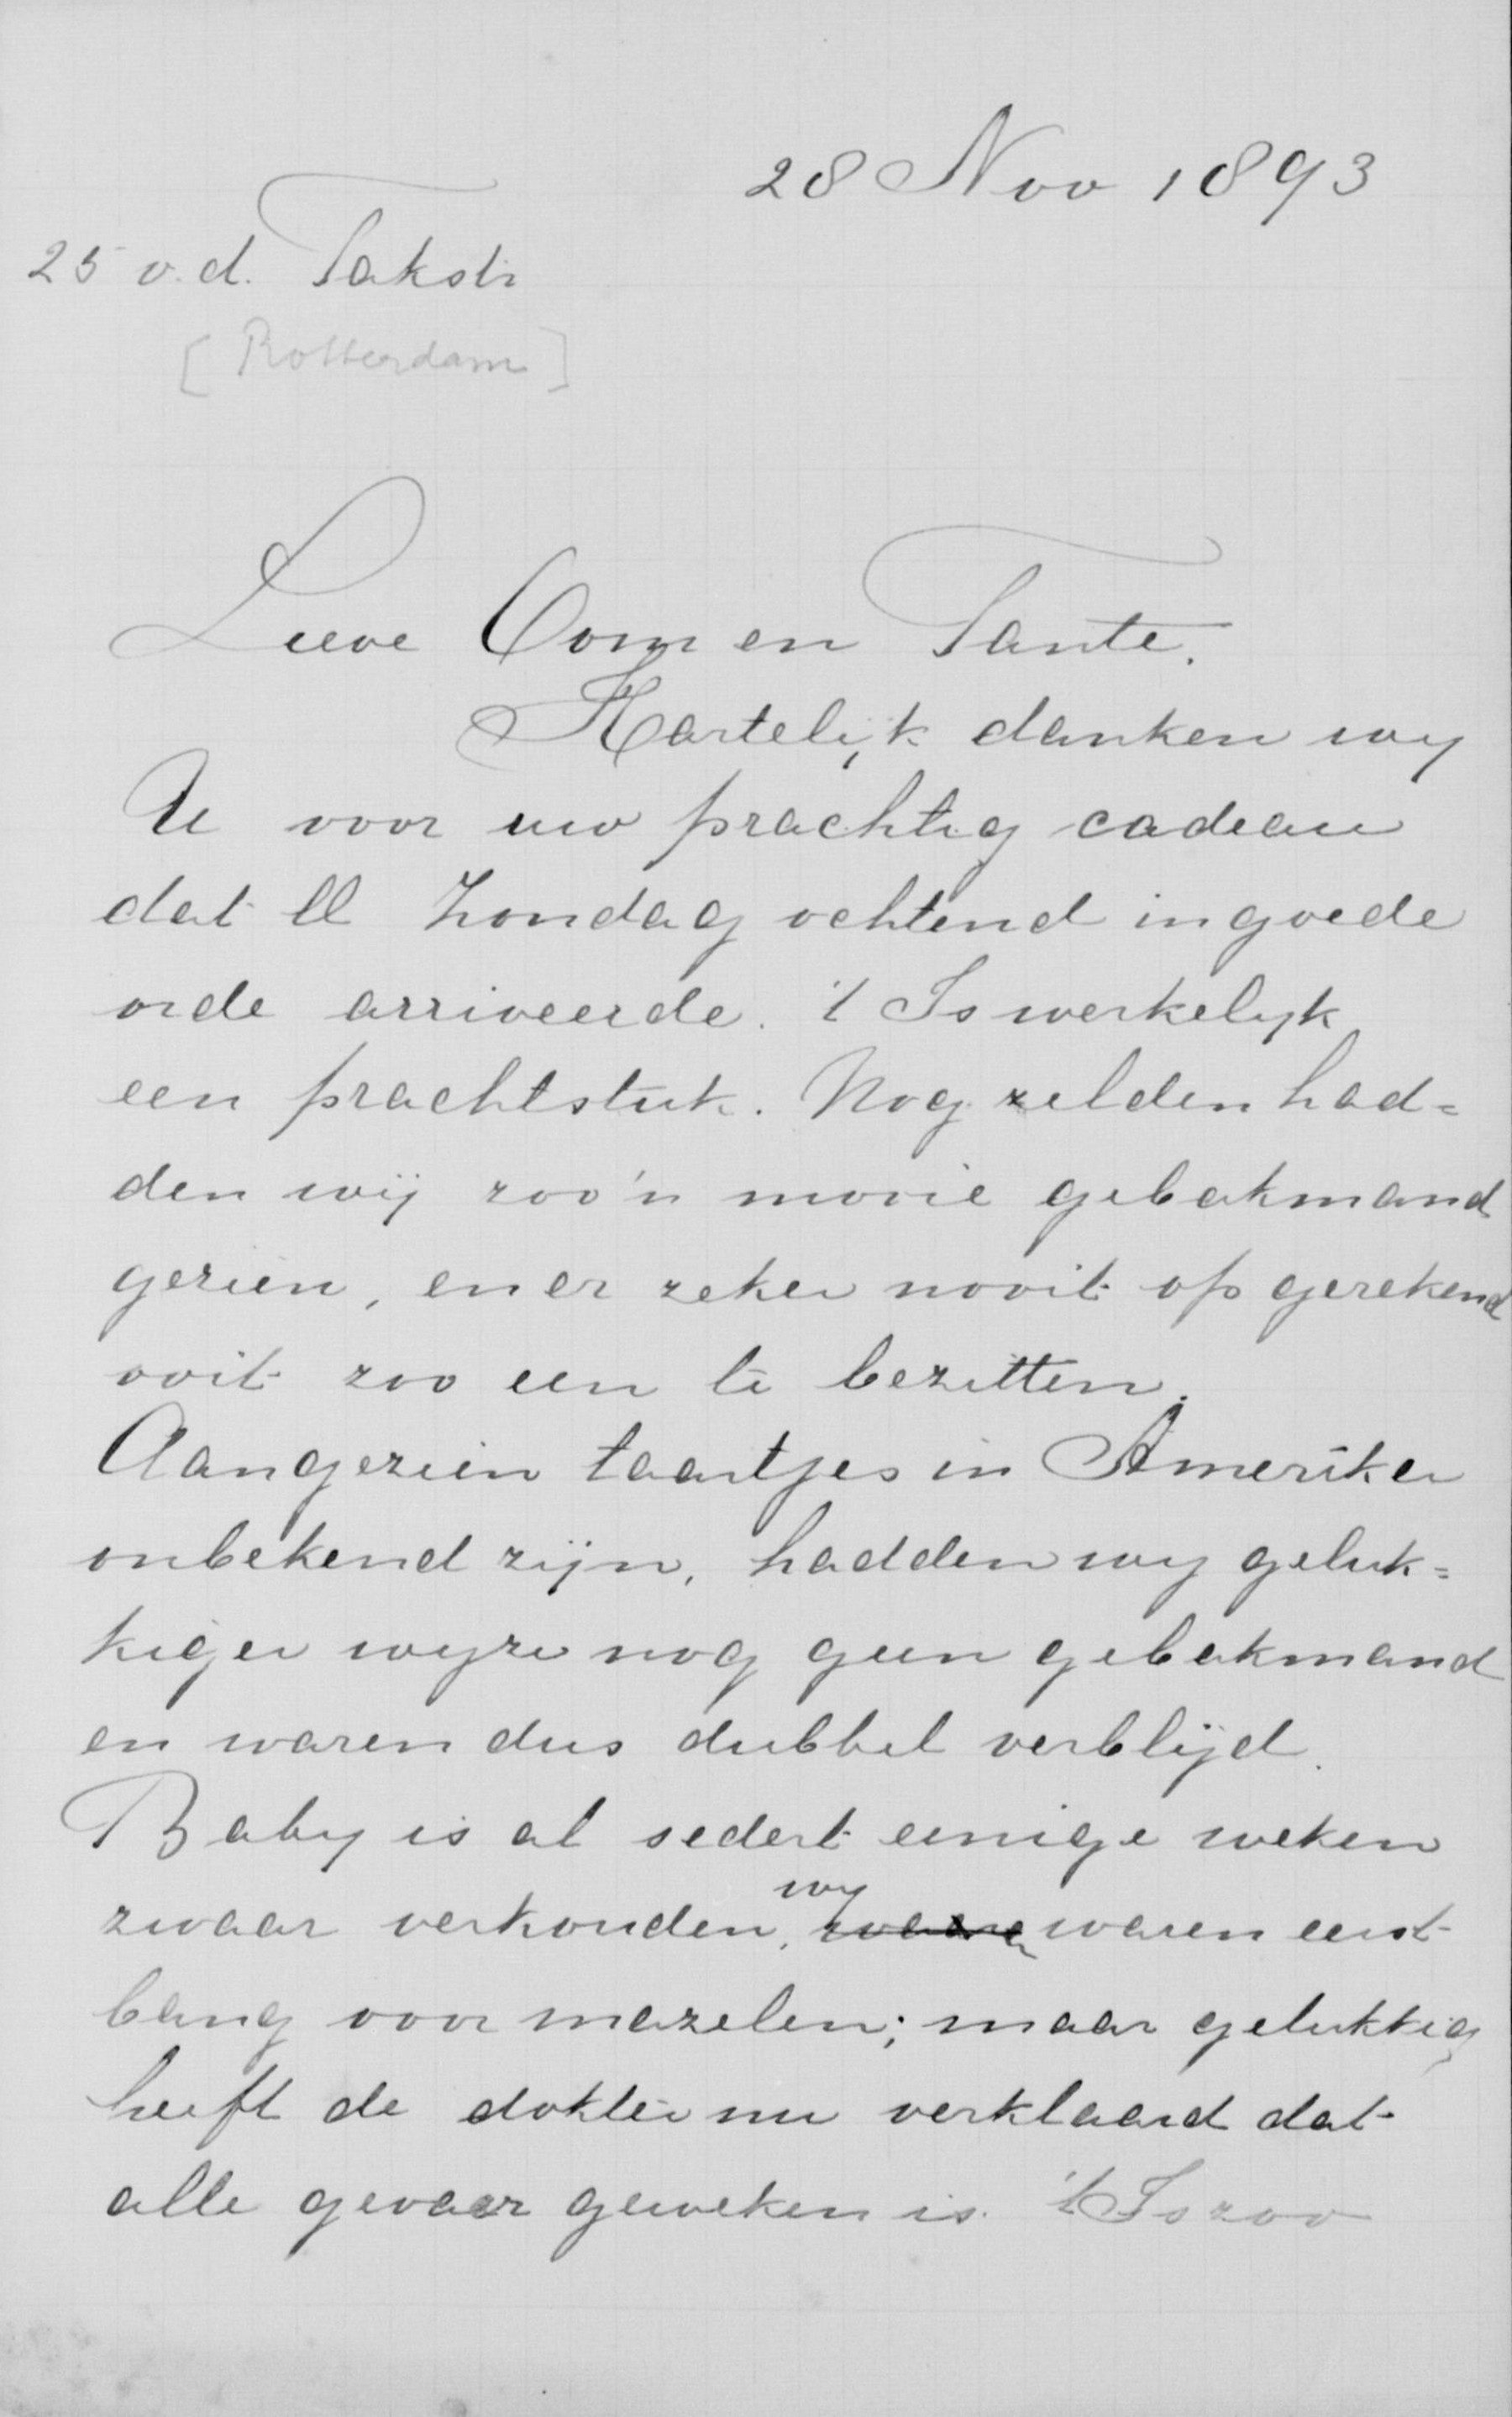 28 Nov 1893
25 v.d. Takstr
[Rotterdam]
Lieve Oom en Tante.
Hartelijk danken wy
U voor uw prachtig cadeau
dat ll Zondag ochtend in goede
orde arriveerde. 't Is werkelyk
een prachtstuk. Nog zelden had=
den wij zoo'n mooie gebakmand
gezien, en er zeker nooit op gerekend
ooit zoo een te bezitten.
Aangezien taartjes in Amerika
onbekend zijn, hadden wy geluk=
kiger wyze nog geen gebakmand
en waren dus dubbel verblijd.
Baby is al sedert eenige weken
zwaar verkouden, wy waren eerst
bang voor mazelen; maar gelukkig
heeft de dokter nu verklaard dat
alle gevaar geweken is. 't Is zoo